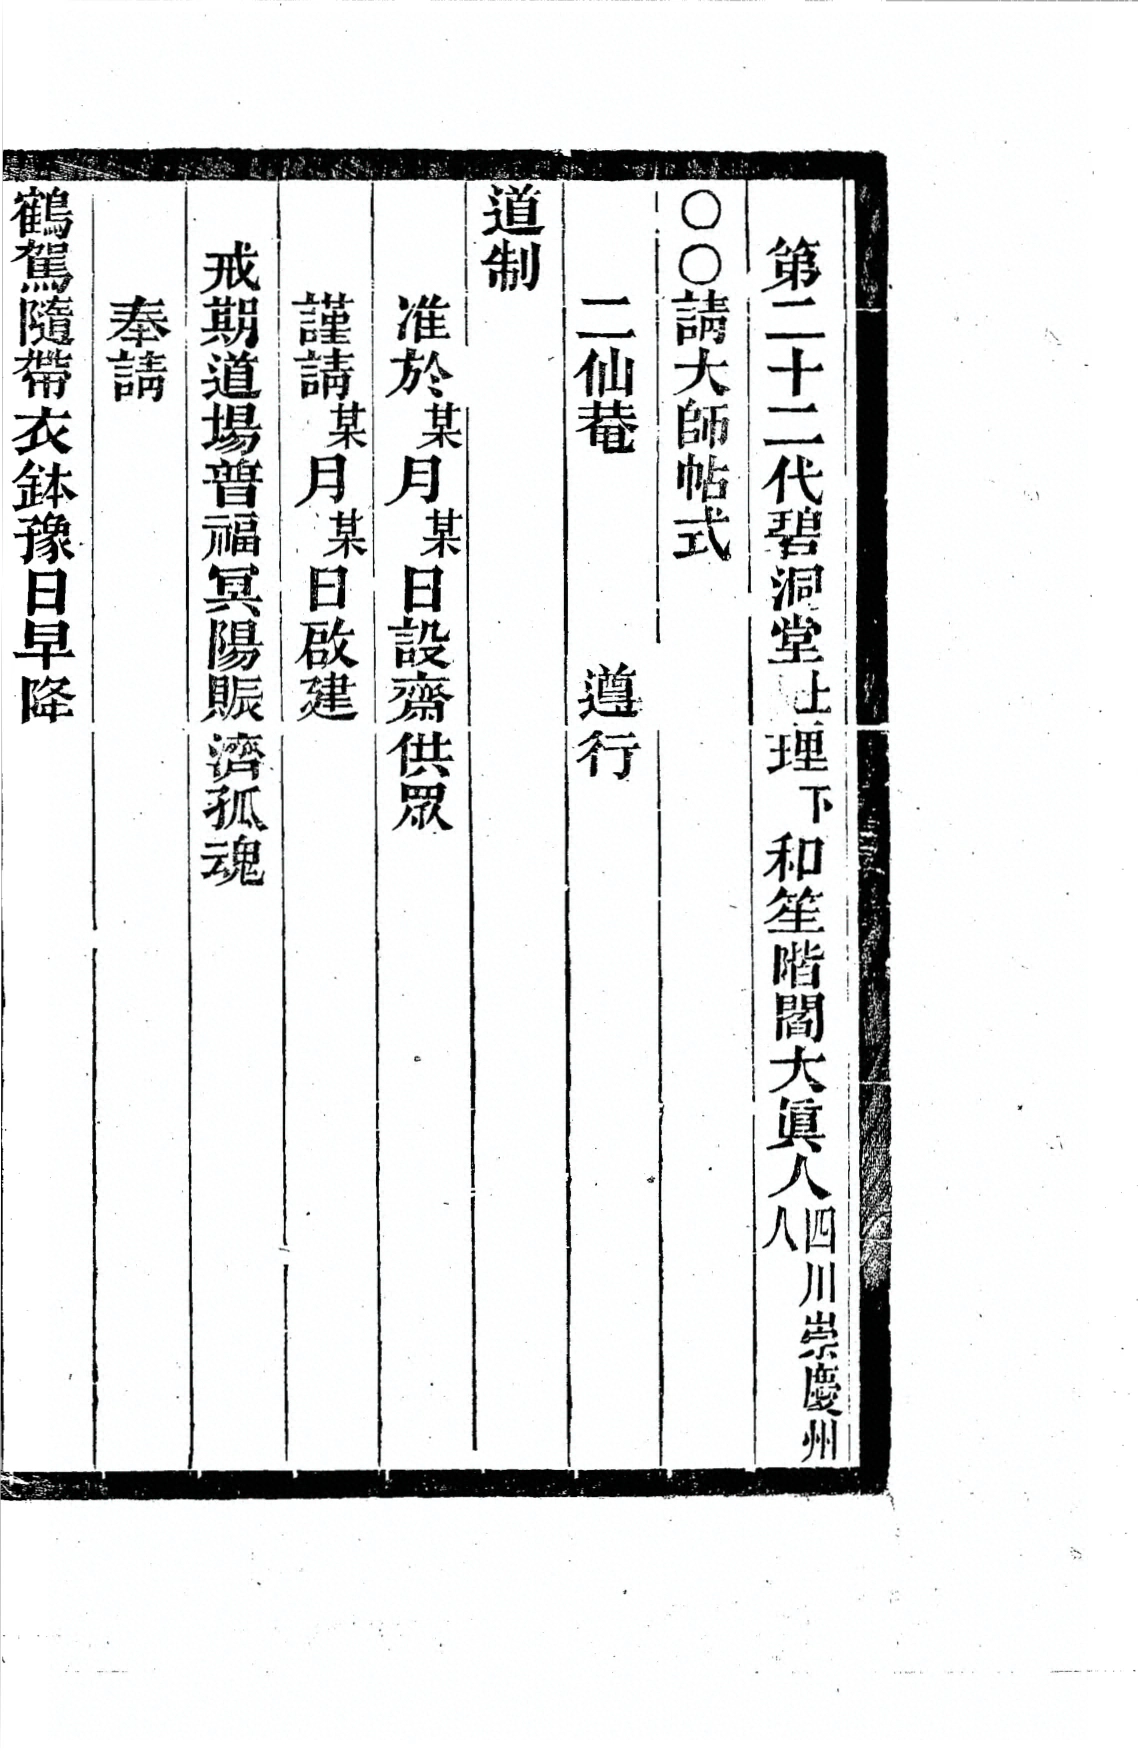 第二十二代碧洞堂上理下和笙階閻大眞人四川崇慶州人
〇〇請大師帖式
二仙菴　遵行
道制
准於某月某日設齋供眾
謹請某月某日啟建
戒期道場普福冥陽賑濟孤魂
奉請
鶴駕隨帶衣鉢豫日早降